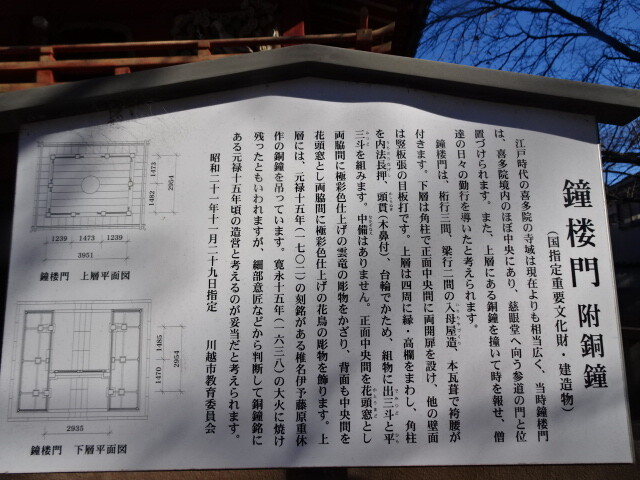 鐘楼門 附銅鐘
(国指定重要文化財・建造物)
江戸時代の喜多院の寺域は現在よりも相当広く、当時鐘楼門
は、喜多院境内のほぼ中央にあり、慈眼堂へ向う参道の門と位
置づけられます。また、上層にある銅鐘を撞いて時を報せ、僧
達の日々の勤行を導いたと考えられます。
鐘楼門は、桁行三間、梁行二間の入母屋造、本瓦葺で袴腰が
付きます。下層は角柱で正面中央間に両開扉を設け、他の壁面
は竪板張の目板打です。上層は四周に縁・高欄をまわし、角柱
を内法長押、頭貫(木鼻付)、台輪でかため、組物に出三斗と平
三斗を組みます。中備はありません。正面中央間を花頭窓とし
両脇間に極彩色仕上げの雲竜の彫物をかざり、背面も中央間を
花頭窓とし両脇間に極彩色仕上げの花鳥の彫物を飾ります。上
層には、元禄十五年(一七〇二)の刻銘がある椎名伊予藤原重休
作の銅鐘を吊っています。寛永十五年(一六三八)の大火に焼け
残ったともいわれますが、細部意匠などから判断して銅鐘銘に
ある元禄十五年頃の造営と考えるのが妥当だと考えられます。
昭和二十一年十一月二十九日指定 川越市教育委員会
1473
1482
2954
1239 1473 1239
3951
鐘楼門 上層平面図
1485
1470
2954
2935
鐘楼門 下層平面図